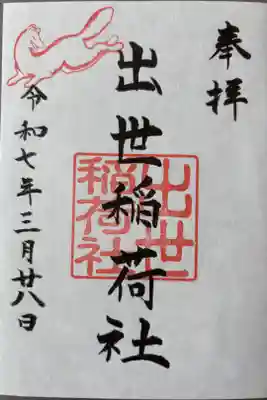 奉拝
出世稲荷社
出世
稲荷社
令和七年三月廿八日